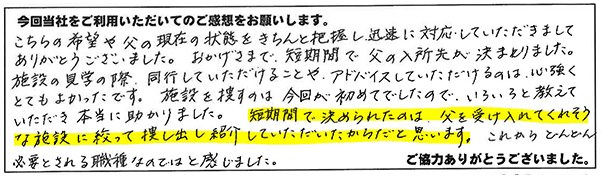 今回当社をご利用いただいてのご感想をお願いします。
こちらの希望や父の現在の状態をきちんと把握し、迅速に対応していただきまして
ありがとうございました。おかげさまで、短期間で父の入所先が決まりました。
施設の見学の際、同行していただけることや、アドバイスしていただけるのは、心強く
とてもよかったです。施設を捜すのは今回が初めてでしたので、いろいろと教えて
いただき本当に助かりました。短期間で決められたのは、父を受け入れてくれそう
な施設に絞って捜し出し紹介していただいたからだと思います。これからどんどん
必要とされる職種なのではと感じました。
ご協力ありがとうございました。